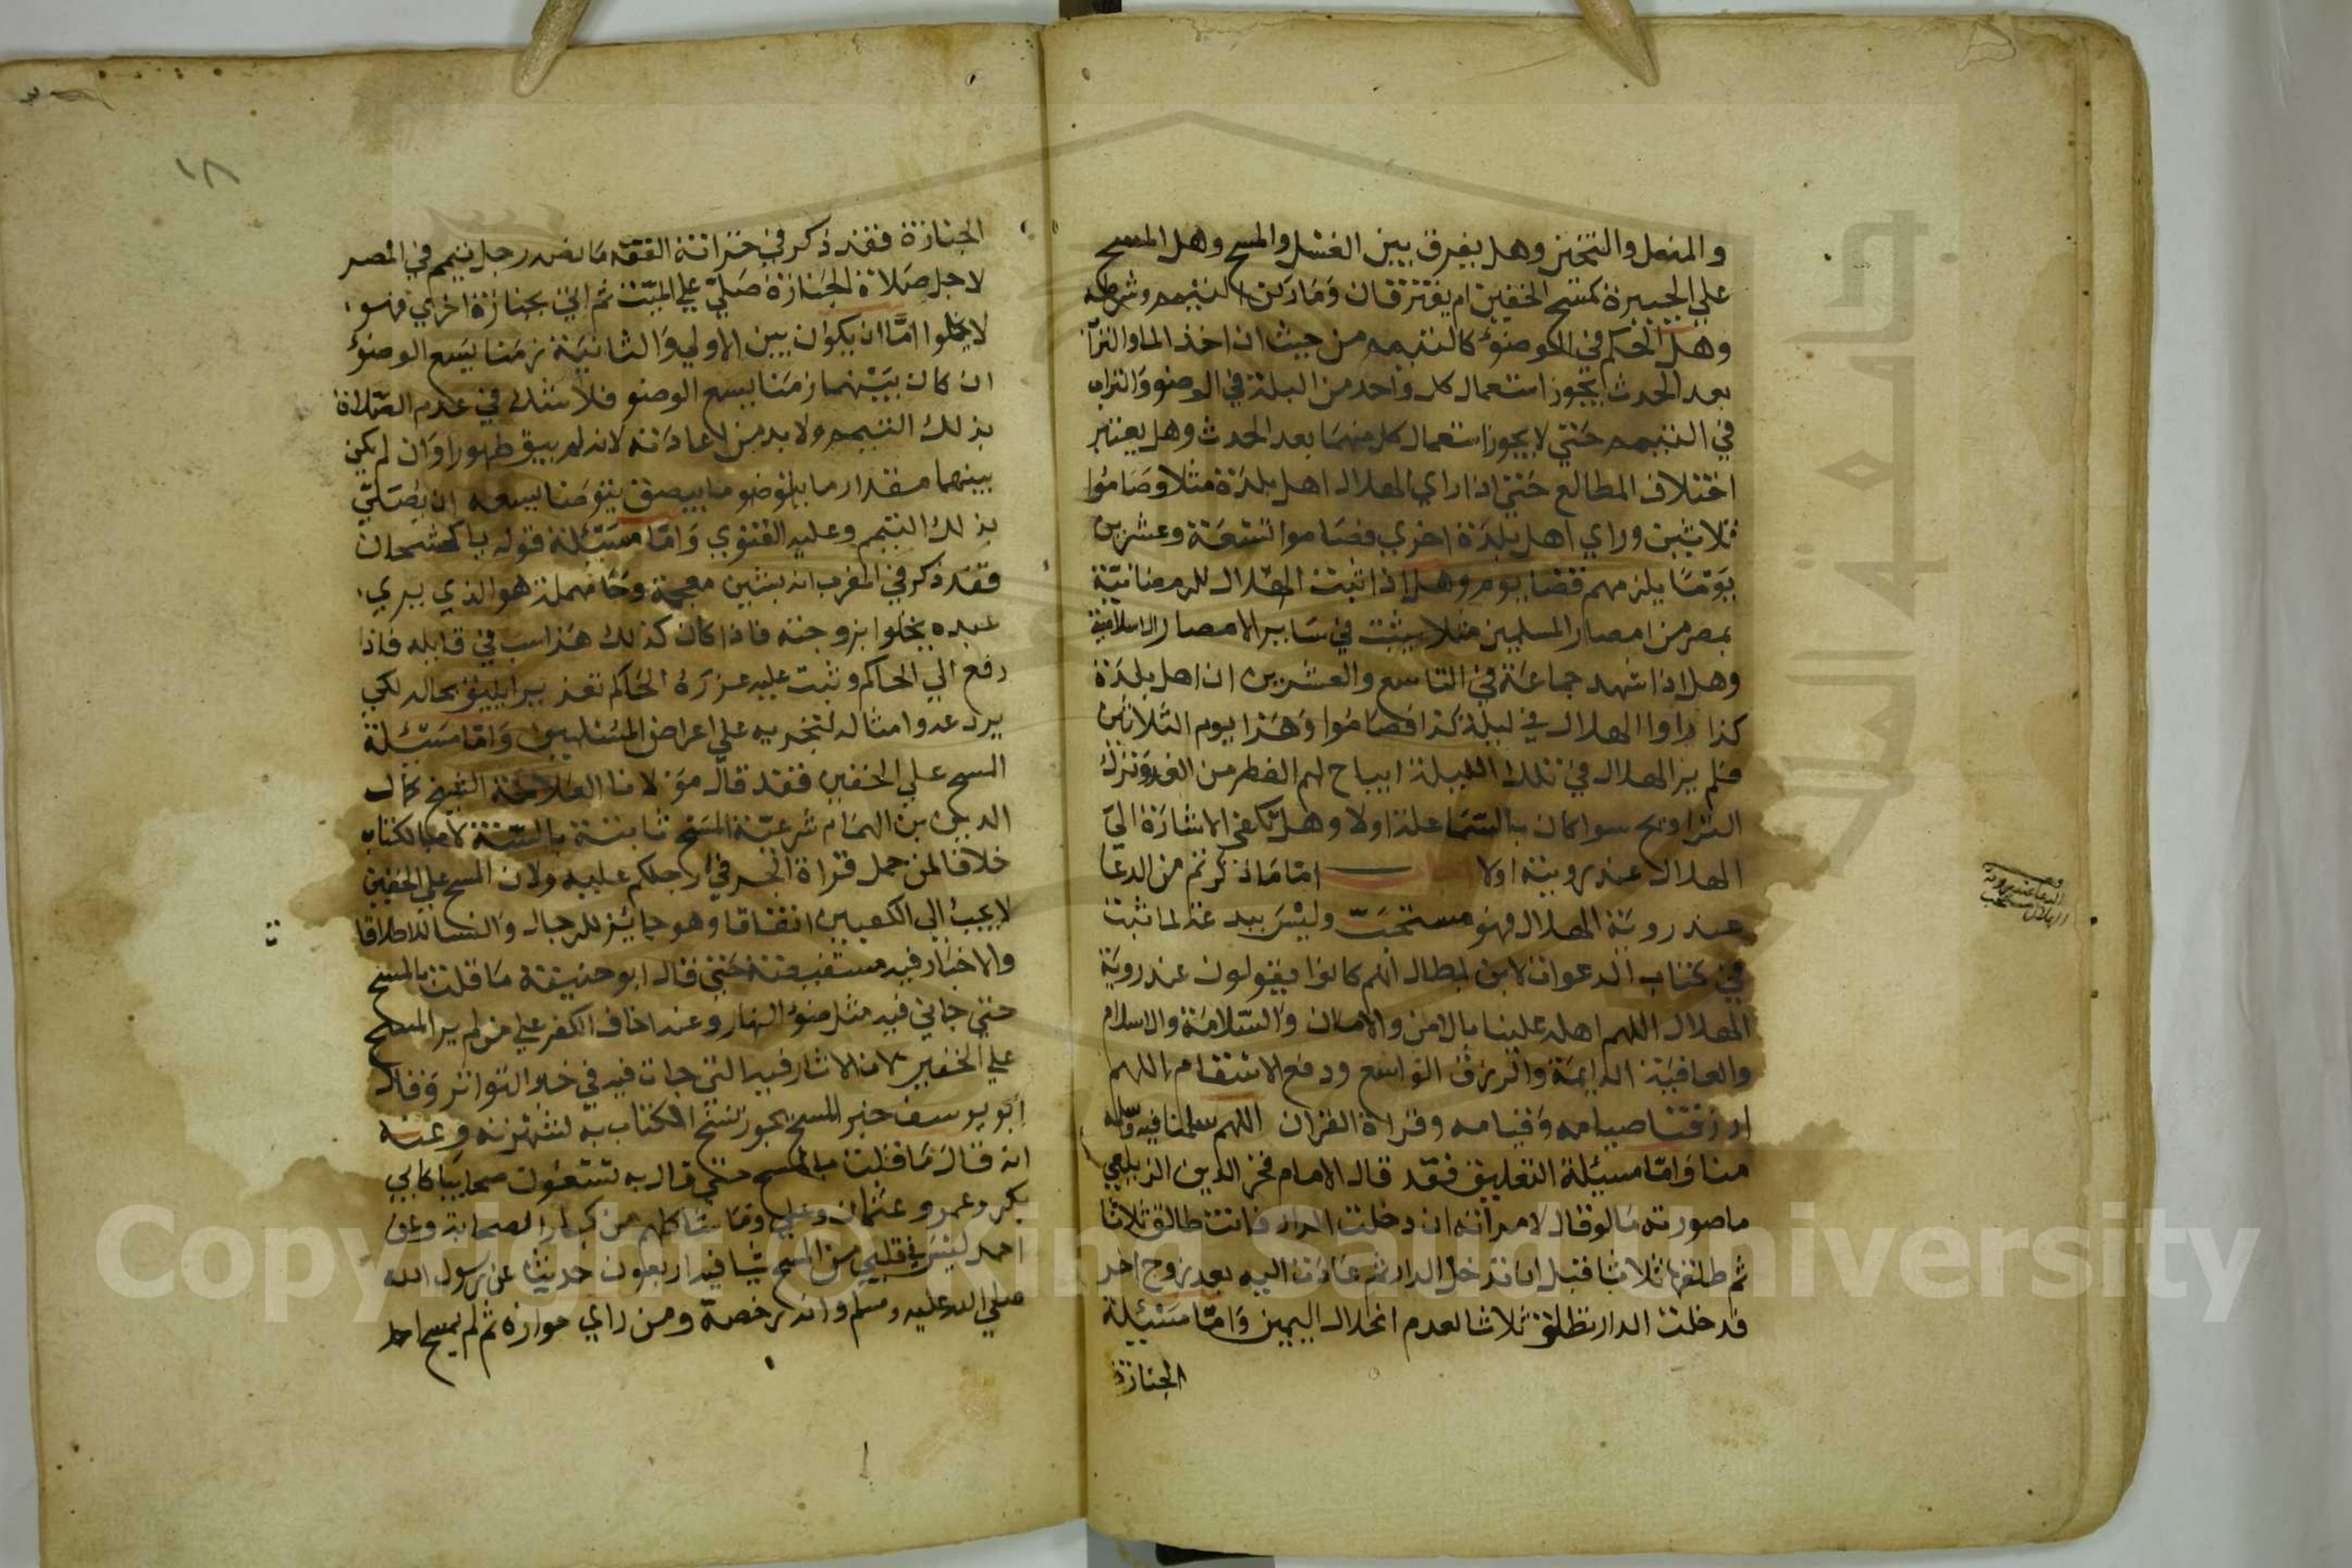 والمنعل والتخنز وهل يفرق بين الغسل والمسح وهل المسح
علي الجبيرة كمسح الخفين ام يفترقان وما ركن التيمم وشرطه
وهل الحكم في الوضوء كالتيمم من حيث ان اخذ الما والتراب
بعد الحدث ايجوز استعمال كل واحد من البلة في الوضو والتراب
في التيمم حتي لا يجوز استعمال كل منهما بعد الحدث وهل يعتبر
اختلاف المطالع حتي اذا راي الهلال اهل بلدة مثلا وصاموا
ثلاثين وراي اهل بلدة اخري فصاموا تسعة وعشرين
يوما يلزمهم قضا يوم وهل اذا ثبت الهلال للرمضانية
بمصر من امصار المسلمين مثلا يثبت في ساير الامصار الاسلامية
وهل اذا شهد جماعة في التاسع والعشرين ان اهل بلدة
كذا راوا الهلال في ليلة كذا فصاموا وهذا يوم الثلاثين
فلم ير الهلال في تلك الليلة ايباح لهم الفطر من الغد وترك
التراويح سوا كان بالسما علة اولا وهل تكفي الاشارة الي
الهلال عند رويته اولا اما ما ذكرتم من الدعا
عند روية الهلال فهو مستحب وليس ببدعة لما ثبت
في كتاب الدعوات لابن بطال انهم كانوا يقولون عند روية
الهلال اللهم اهله علينا بالامن والامان والسلامة والاسلام
والعافية الدايمة والرزق الواسع ودفع الاسقام اللهم
ارزقنا صيامه وقيامه وقراة القران اللهم سلمنا فيه وسلمه
منا واما مسئلة التعليق فقد قال الامام فخر الدين الزيلعي
ما صورته ما لو قال لامراته ان دخلت الدار فانت طالق ثلاثا
ثم طلقها ثلاثا قبل ان تدخل الدار ثم عادت اليه بعد زوج اخر
فدخلت الدار تطلق ثلاثا لعدم انحلال اليمين واما مسئلة
الجنازة
الدعا عند روية
الهلال مستحب
١٨
الجنازة فقد ذكر في خزانة الفقه ما نصه رجل تيمم في المصر
لاجل صلاة الجنازة صلي علي الميت ثم اتي بجنازة اخري فهو
لا يخلوا اما ان يكون بين الاولي والثانية زمنا يسع الوضوء
ان كان بينهما زمنا يسع الوضو فلا شك في عدم الصلاة
بذلك التيمم ولا بد من اعادته لانه لم يبق طهورا وان لم يكن
بينهما مقدار ما يتوضا يسعه ان يصلي
بذلك التيمم وعليه الفتوي واما مسئلة قوله يا كشحان
فقد ذكر في المغرب انه بشين معجمة وحا مهملة هو الذي يري
عبده يخلوا بزوجته فاذا كان كذلك هذا سب في قايله فاذا
رفع الي الحاكم وثبت عليه عزره الحاكم تعذيرا يليق بحاله لكي
يردعه وامثاله لتجريه علي اعراض المسلمين واما مسئلة
المسح علي الخفين فقد قال مولانا العلامة الشيخ كمال
الدين بن الهمام شرعية المسح ثابتة بالسنة لا بالكتاب
خلافا لمن حمل قراة الجر في ارجلكم عليه ولان المسح علي الخفين
لا يجب الي الكعبين اتفاقا وهو جايز للرجال والنسا للاطلاقا
والاخبار فيه مستفيضة حتي قال ابو حنيفة ما قلت بالمسح
حتي جاني فيه مثل ضوء النهار وعنه اخاف الكفر علي من لم ير المسح
علي الخفين لان الاثار فيه التي جات فيه في خبر التواتر وقال
ابو يوسف خبر المسح يجوز نسخ الكتاب به لشهرته وعنه
انه قال ما قلت بالمسح حتي قال به تسعون صحابيا كابي
بكر وعمر وعثمان وعلي وما شاكلهم من كبار الصحابة وعن
احمد ليس في قلبي من المسح شيا فيه اربعون حديثا عن رسول الله
صلي الله عليه وسلم وانه رخصة ومن راي جوازه ثم لم يمسح اخذ
Copyright © King Saud University
جامعة الملك سعود